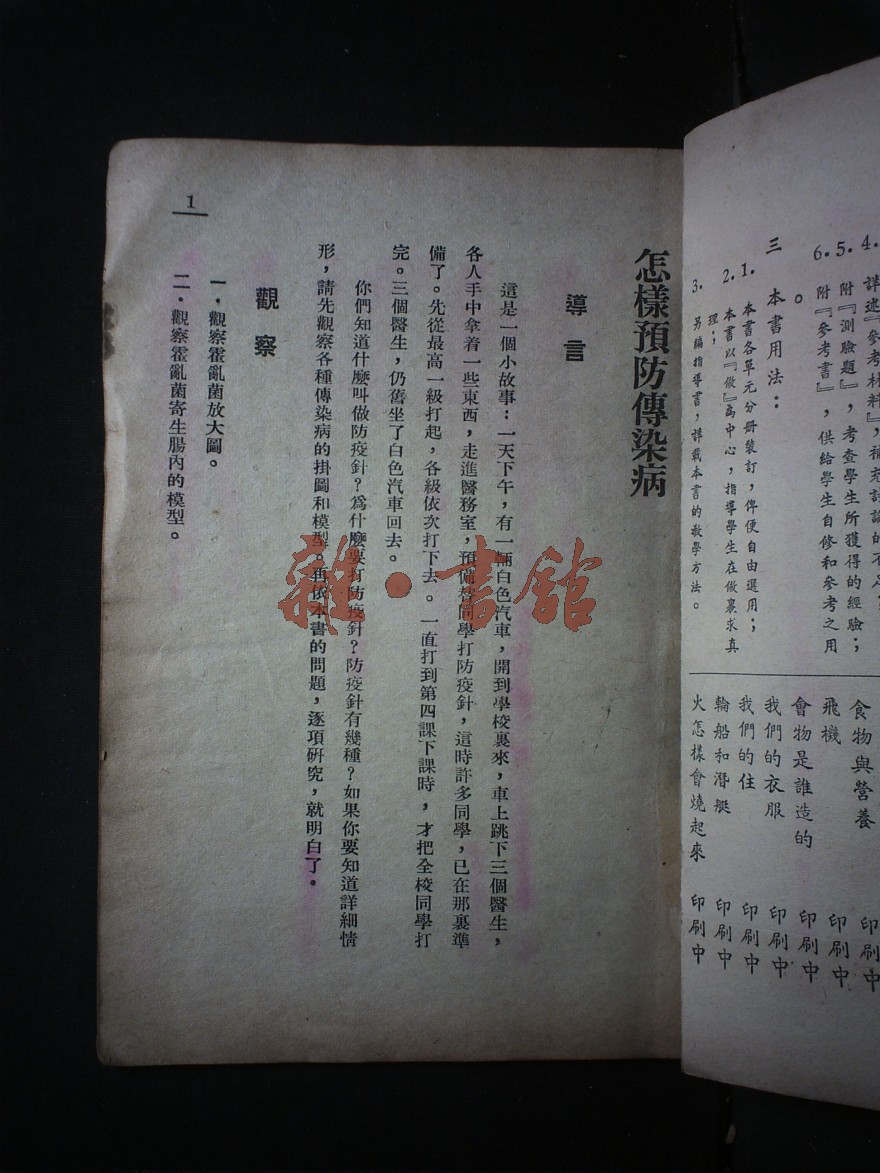 4. 詳述『參考材料』，補充討論的不足；
5. 附『測驗題』，考查學生所獲得的經驗；
6. 附『參考書』，供給學生自修和參考之用
。
三 本書用法：
1. 本書各單元分册裝訂，俾便自由選用；
2. 本書以『做』爲中心，指導學生在做裏求真
理；
3. 另編指導書，詳載本書的教學方法。
食物與營養 印刷中
飛機 印刷中
會物是誰造的 印刷中
我們的衣服 印刷中
我們的住 印刷中
輪船和潛艇 印刷中
火怎樣會燒起來 印刷中
怎樣預防傳染病
導言
這是一個小故事：一天下午，有一輛白色汽車，開到學校裏來，車上跳下三個醫生，
各人手中拿着一些東西，走進醫務室，預備替同學打防疫針，這時許多同學，已在那裏準
備了。先從最高一級打起，各級依次打下去。一直打到第四課下課時，才把全校同學打
完。三個醫生，仍舊坐了白色汽車回去。
你們知道什麼叫做防疫針？爲什麼要打防疫針？防疫針有幾種？如果你要知道詳細情
形，請先觀察各種傳染病的掛圖和模型。再依本書的問題，逐項研究，就明白了。
觀察
一．觀察霍亂菌放大圖。
二．觀察霍亂菌寄生腸內的模型。
1
雜·書館